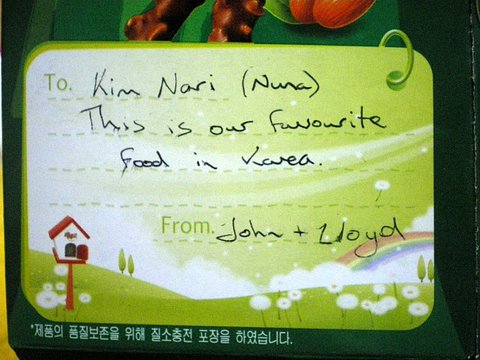 To. Kim Nari (Nuna)
This is our favourite
food in Korea.
From. John + Lloyd
*제품의 품질보존을 위해 질소충전 포장을 하였습니다.